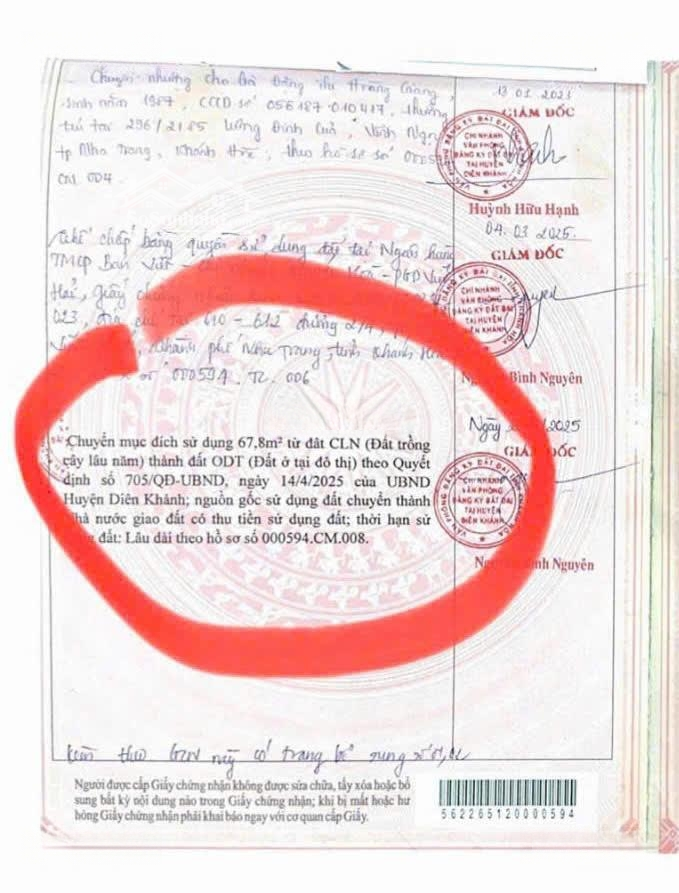 Chuyển nhượng cho Bà Đặng Thị Hương Giang,
sinh năm 1987, CCCD số 056187010417, thường
trú tại 296/2185 Lương Định Của, Vĩnh Ngọc
tp Nha Trang, Khánh Hòa, theo hồ sơ số 000594
CN 004.
13 01 2025
GIÁM ĐỐC
CHI NHÁNH
VĂN PHÒNG
ĐĂNG KÝ ĐẤT ĐAI
TẠI HUYỆN
DIÊN KHÁNH
Huỳnh Hữu Hạnh
Thế chấp bằng quyền sử dụng đất tại Ngân hàng
TMCP Bản Việt
PGD
Hải, Giấy chứng
023, địa chỉ tại 610 - 612 đường 2/4,
thành phố Nha Trang, tỉnh Khánh Hòa
số 000594.TC.006
04. 03 2025.
GIÁM ĐỐC
CHI NHÁNH
VĂN PHÒNG
ĐĂNG KÝ ĐẤT ĐAI
TẠI HUYỆN
DIÊN KHÁNH
Bình Nguyên
Chuyển mục đích sử dụng 67,8m² từ đât CLN (Đất trồng
cây lâu năm) thành đất ODT (Đất ở tại đô thị) theo Quyết
định số 705/QĐ-UBND, ngày 14/4/2025 của UBND
Huyện Diên Khánh; nguồn gốc sử dụng đất chuyển thành
Nhà nước giao đất có thu tiền sử dụng đất; thời hạn sử
đất: Lâu dài theo hồ sơ số 000594.CM.008.
Ngày /2025
GIÁM ĐỐC
CHI NHÁNH
VĂN PHÒNG
ĐĂNG KÝ ĐẤT ĐAI
TẠI HUYỆN
DIÊN KHÁNH
Bình Nguyên
Kèm theo GCN này có trang bổ sung số 01,02
Người được cấp Giấy chứng nhận không được sửa chữa, tẩy xóa hoặc bổ
sung bất kỳ nội dung nào trong Giấy chứng nhận; khi bị mất hoặc hư
hỏng Giấy chứng nhận phải khai báo ngay với cơ quan cấp Giấy.
562265120000594